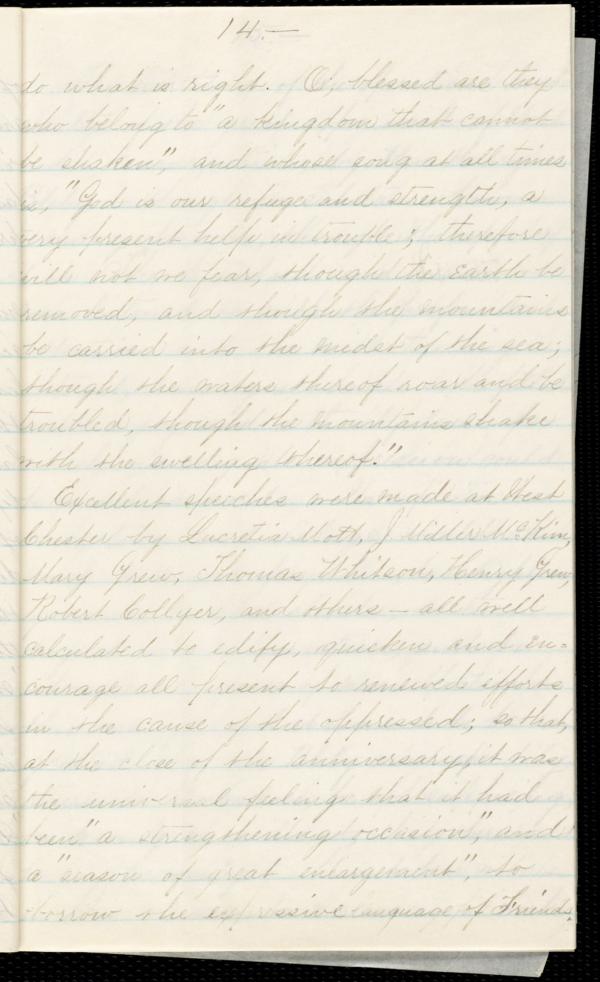 14.—
do what is right. O, blessed are they
who belong to "a kingdom that cannot
be shaken", and whose song at all times
is, "God is our refuge and strength, a
very present help in trouble; therefore
will not we fear, though the earth be
removed, and though the mountains
be carried into the midst of the sea;
though the waters thereof roar and be
troubled, though the mountains shake
with the swelling thereof."
Excellent speeches were made at West
Chester by Lucretia Mott, J Miller McKim,
Mary Grew, Thomas Whitson, Henry Grew,
Robert Collyer, and others — all well
calculated to edify, quicken and en=
courage all present to renewed efforts
in the cause of the oppressed; so that,
at the close of the anniversary, it was
the universal feeling that it had
been "a strengthening occasion", and
a "season of great enlargement", to
borrow the expressive language of Friends.